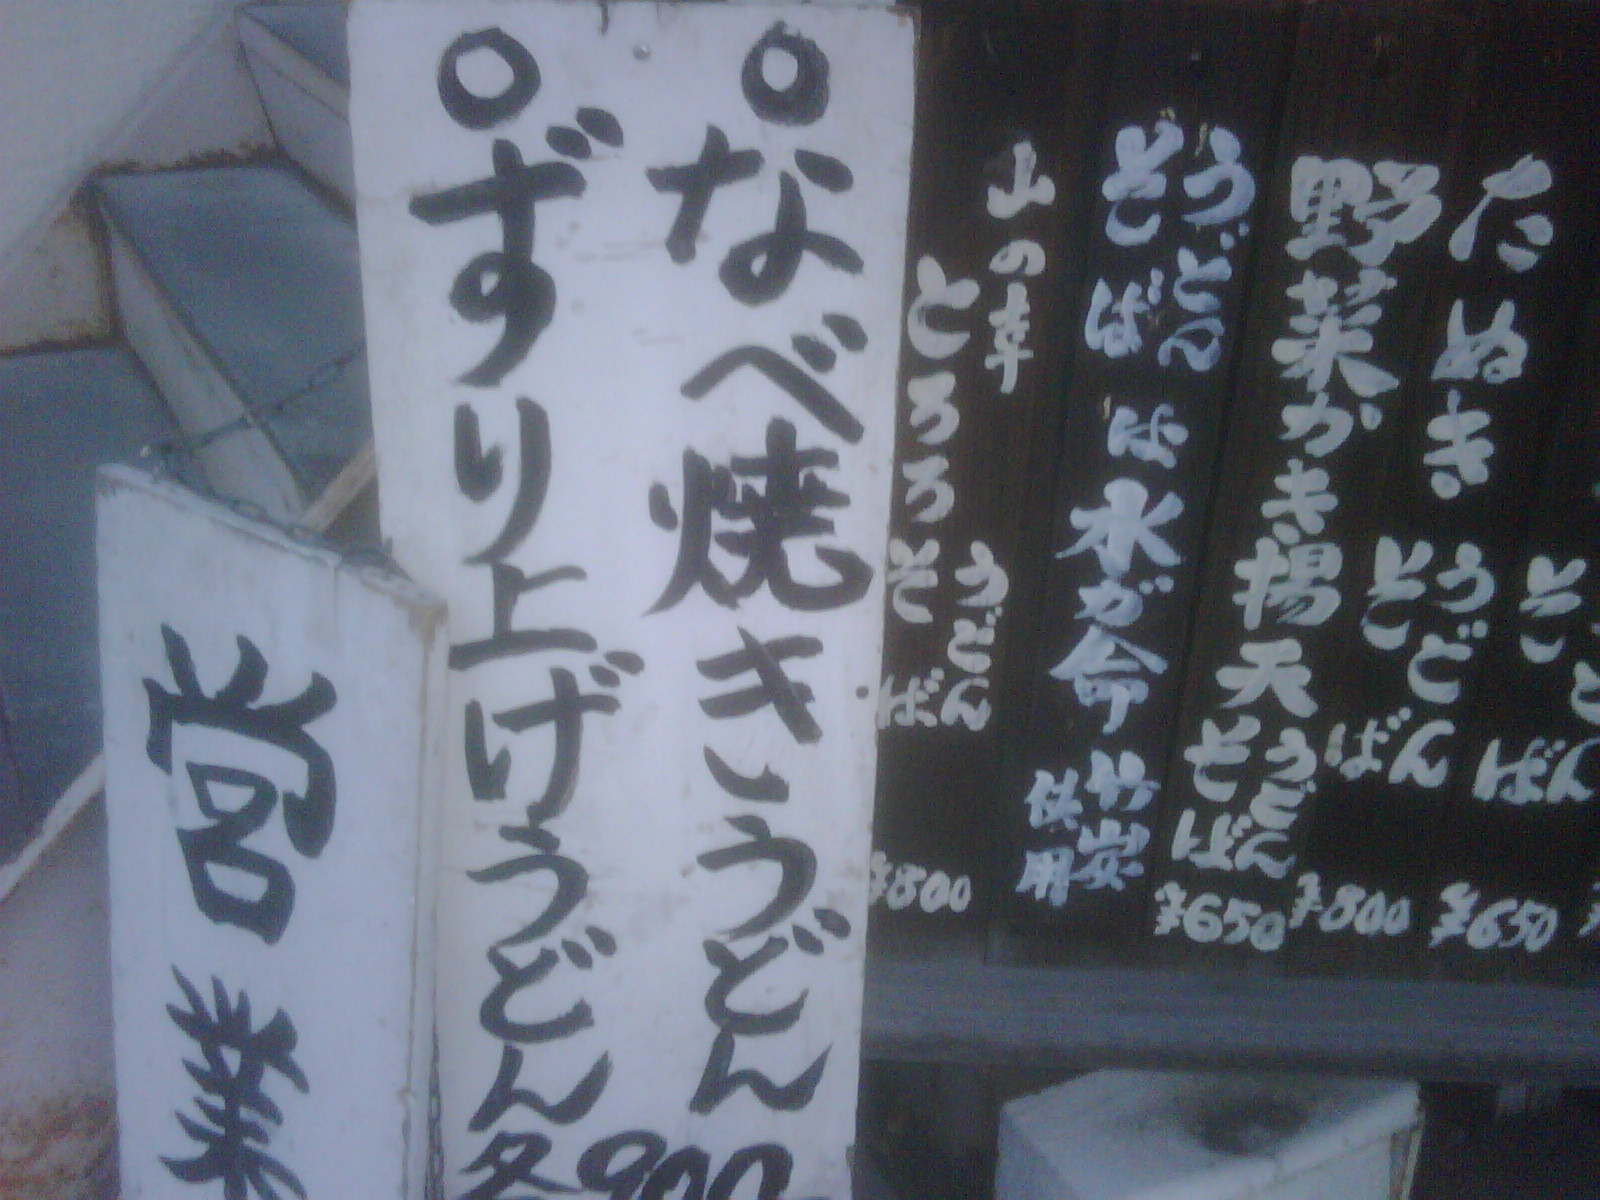 たぬき うどん そば ¥650
野菜かき揚天 うどん そば ¥800
うどん そば は 水が命 竹炭 使用
山の幸 とろろ うどん そば ¥800
¥650
○なべ焼きうどん
○ずり上げうどん
各900
営業